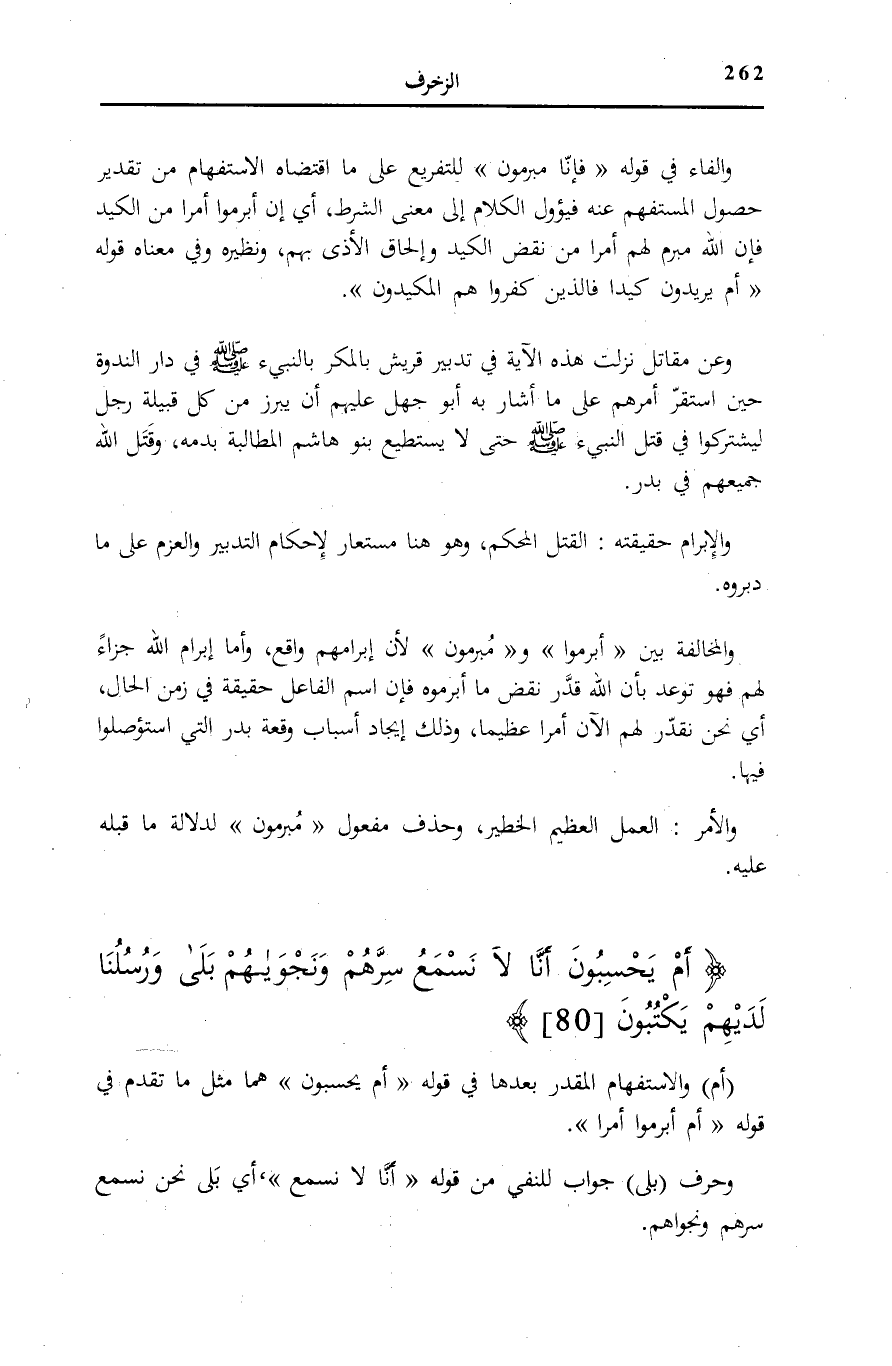 262
الزخرف
والفاء في قوله « فإنّا مبرمون » للتفريع على ما اقتضاه الاستفهام من تقدير
حصول المستفهم عنه فيؤول الكلام إلى معنى الشرط، أي إن أبرموا أمرا من الكيد
فإن الله مبرم لهم أمرا من نقض الكيد وإلحاق الأذى بهم، ونظيره وفي معناه قوله
« أم يريدون كيدا فالذين كفروا هم المكيدون ».
وعن مقاتل نزلت هذه الآية في تدبير قريش بالمكر بالنبيء ﷺ في دار الندوة
حين استقرّ أمرهم على ما أشار به أبو جهل عليهم أن يبرز من كل قبيلة رجل
ليشتركوا في قتل النبيء ﷺ حتى لا يستطيع بنو هاشم المطالبة بدمه، وقَتَل الله
جميعهم في بدر.
والإبرام حقيقته : القتل المحكم، وهو هنا مستعار لإحكام التدبير والعزم على ما
دبروه.
والمخالفة بين « أبرموا » و« مُبرمون » لأن إبرامهم واقع، وأما إبرام الله جزاءً
لهم فهو توعد بأن الله قدَّر نقض ما أبرموه فإن اسم الفاعل حقيقة في زمن الحال،
أي نحن نقدّر لهم الآن أمرا عظيما، وذلك إيجاد أسباب وقعة بدر التي استؤصلوا
فيها.
والأمر : العمل العظيم الخطير، وحذف مفعول « مُبرمون » لدلالة ما قبله
عليه.
﴿ أَمْ يَحْسِبُونَ أَنَّا لَا نَسْمَعُ سِرَّهُمْ وَنَجْوَيٰهُمْ بَلَىٰ وَرُسُلُنَا
لَدَيْهِمْ يَكْتُبُونَ [80] ﴾
(أم) والاستفهام المقدر بعدها في قوله « أم يحسبون » هما مثل ما تقدم في
قوله « أم أبرموا أمرا ».
وحرف (بلى) جواب للنفي من قوله « أَنَّا لا نسمع »، أي بَلى نحن نسمع
سرهم ونجواهم.